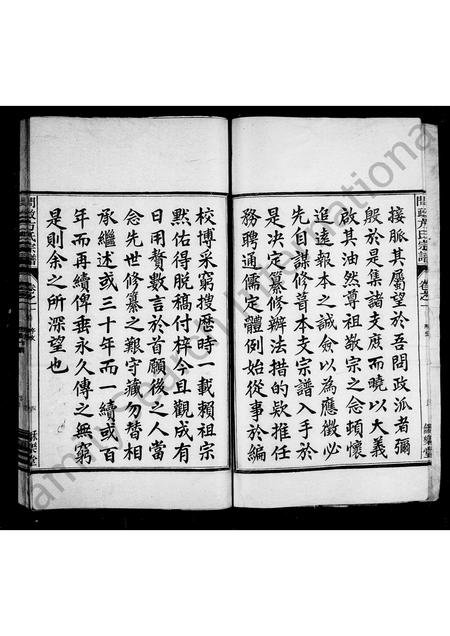 接脈其屬望於吾問政派者彌
殷於是集諸支庶而曉以大義
啟其油然尊祖敬宗之念頓懷
追遠報本之誠僉以為應徵必
先自謀修葺本支宗譜入手於
是決定纂修辦法措的款推任
務聘通儒定體例始從事於編
校博采窮搜歷時一載賴祖宗
默佑得脫稿付梓今且觀成有
日用贅數言於首願後之人當
念先世修纂之艱守藏勿替相
承繼述或三十年而一續或百
年而再續俾垂永久傳之無窮
是則余之所深望也
問政方氏宗譜
卷之一